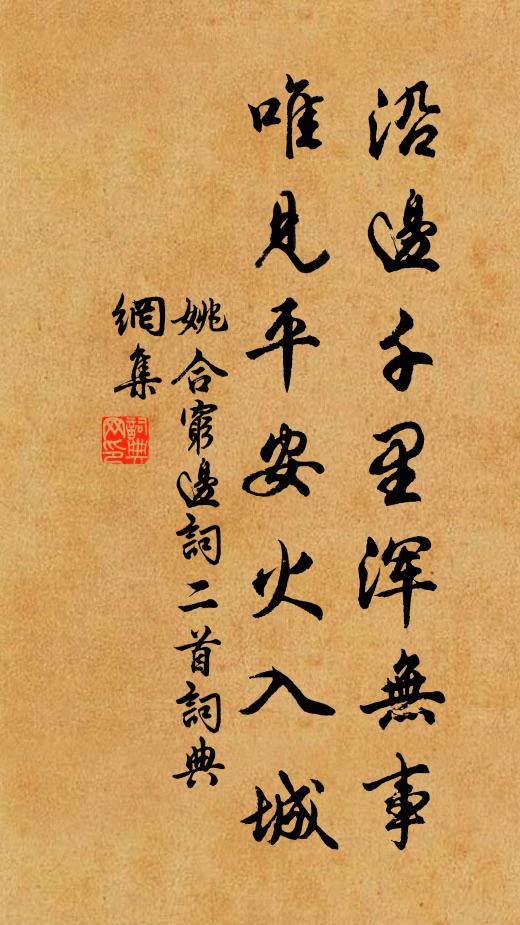 沿邊千里浑無事
唯見平安火入城
姚合窮邊詞二首詞典
網集
詞典
网印